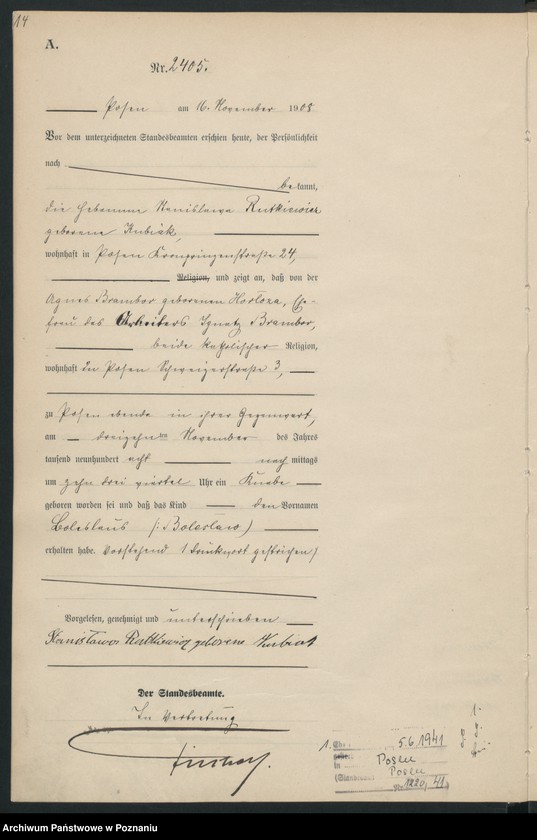 14
A.
Nr. 2405.
Posen am 16. November 1908
Vor dem unterzeichneten Standesbeamten erschien heute, der Persönlichkeit
nach
be kannt,
die Hebamme Stanislawa Rutkiewicz
geborene Kubiak,
wohnhaft in Posen Kronprinzenstraße 24,
Religion, und zeigt an, daß von der
Agnes Brambor geborenen Horloza, Ehe-
frau des Arbeiters Ignatz Brambor,
beide katholischer Religion,
wohnhaft in Posen Schweizerstraße 3,
zu Posen ebenda in ihrer Gegenwart,
am dreizehnten November des Jahres
tausend neunhundert acht nach mittags
um zehn drei viertel Uhr ein Knabe
geboren worden sei und daß das Kind den Vornamen
Boleslaus (: Boleslaw)
erhalten habe. Vorstehend 1 Druckwort gestrichen)
Vorgelesen, genehmigt und unterschrieben
Stanisława Rutkiewicz geborene Kubiak
Der Standesbeamte.
In Vertretung
1. Ehe 5.6.1941
in Posen
(Standesamt Posen
Nr. 1220/41)
Archiwum Państwowe w Poznaniu